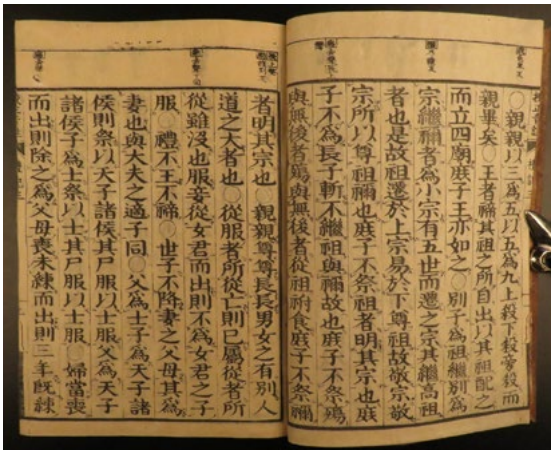 ○親親以三爲五以五爲九上殺下殺旁殺而
親畢矣○王者禘其祖之所自出以其祖配之
而立四廟庶子王亦如之○別子爲祖繼別爲
宗繼禰者爲小宗有五世而遷之宗其繼高祖
者也是故祖遷於上宗易於下尊祖故敬宗敬
宗所以尊祖禰也庶子不祭祖者明其宗也庶
子不爲長子斬不繼祖與禰故也庶子不祭殤
與無後者殤與無後者從祖祔食庶子不祭禰
者明其宗也○親親尊尊長長男女之有別人
道之大者也○從服者所從亡則已屬從者所
從雖沒也服妾從女君而出則不爲女君之子
服○禮不王不禘○世子不降妻之父母其爲
妻也與大夫之適子同○父爲士子爲天子諸
侯則祭以天子諸侯其尸服以士服父爲天子
諸侯子爲士祭以士其尸服以士服○婦當喪
而出則除之爲父母喪未練而出則三年既練